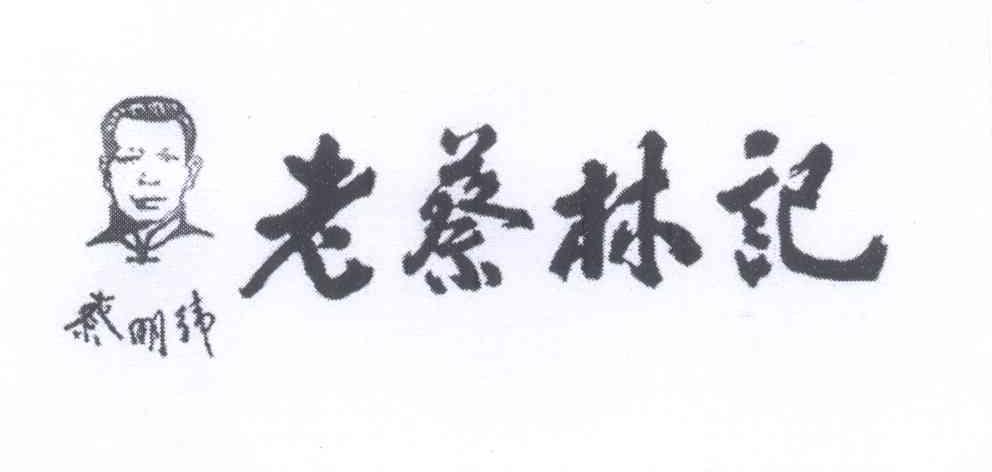 老蔡林記
蔡明緯